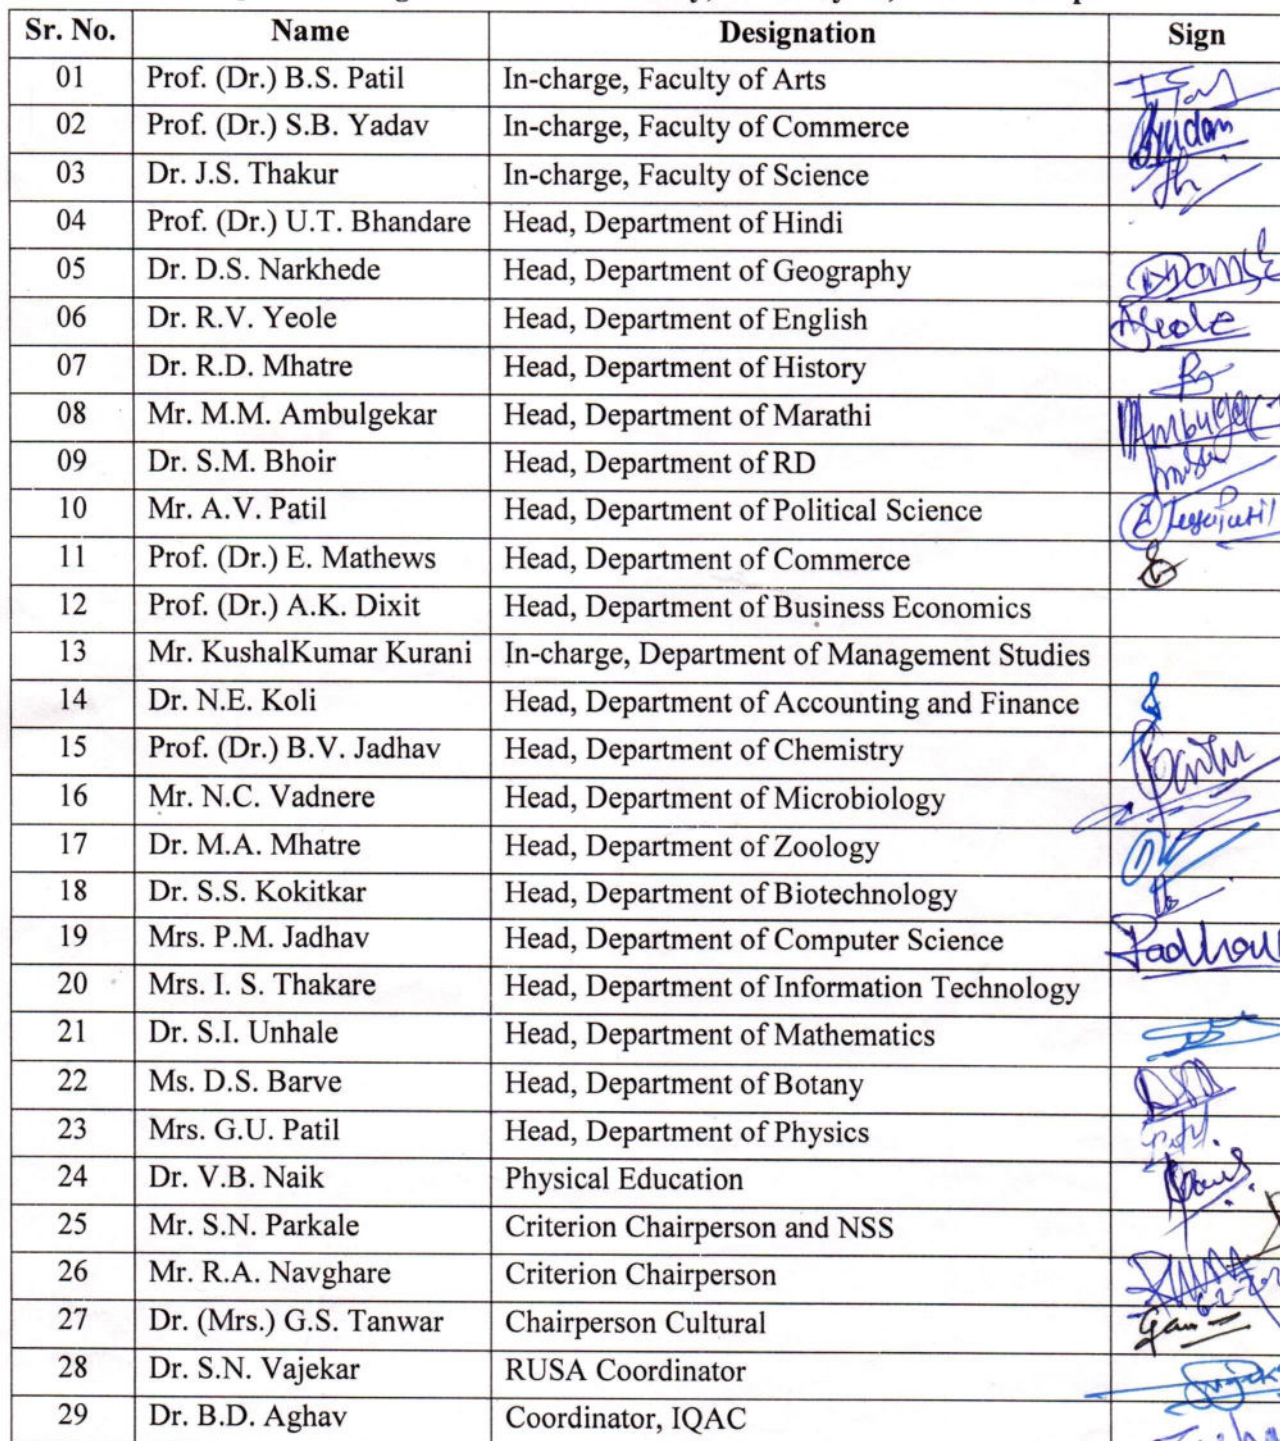 Sr. No. Name Designation Sign
01 Prof. (Dr.) B.S. Patil In-charge, Faculty of Arts
02 Prof. (Dr.) S.B. Yadav In-charge, Faculty of Commerce
03 Dr. J.S. Thakur In-charge, Faculty of Science
04 Prof. (Dr.) U.T. Bhandare Head, Department of Hindi
05 Dr. D.S. Narkhede Head, Department of Geography
06 Dr. R.V. Yeole Head, Department of English
07 Dr. R.D. Mhatre Head, Department of History
08 Mr. M.M. Ambulgekar Head, Department of Marathi
09 Dr. S.M. Bhoir Head, Department of RD
10 Mr. A.V. Patil Head, Department of Political Science
11 Prof. (Dr.) E. Mathews Head, Department of Commerce
12 Prof. (Dr.) A.K. Dixit Head, Department of Business Economics
13 Mr. KushalKumar Kurani In-charge, Department of Management Studies
14 Dr. N.E. Koli Head, Department of Accounting and Finance
15 Prof. (Dr.) B.V. Jadhav Head, Department of Chemistry
16 Mr. N.C. Vadnere Head, Department of Microbiology
17 Dr. M.A. Mhatre Head, Department of Zoology
18 Dr. S.S. Kokitkar Head, Department of Biotechnology
19 Mrs. P.M. Jadhav Head, Department of Computer Science
20 Mrs. I. S. Thakare Head, Department of Information Technology
21 Dr. S.I. Unhale Head, Department of Mathematics
22 Ms. D.S. Barve Head, Department of Botany
23 Mrs. G.U. Patil Head, Department of Physics
24 Dr. V.B. Naik Physical Education
25 Mr. S.N. Parkale Criterion Chairperson and NSS
26 Mr. R.A. Navghare Criterion Chairperson
27 Dr. (Mrs.) G.S. Tanwar Chairperson Cultural
28 Dr. S.N. Vajekar RUSA Coordinator
29 Dr. B.D. Aghav Coordinator, IQAC